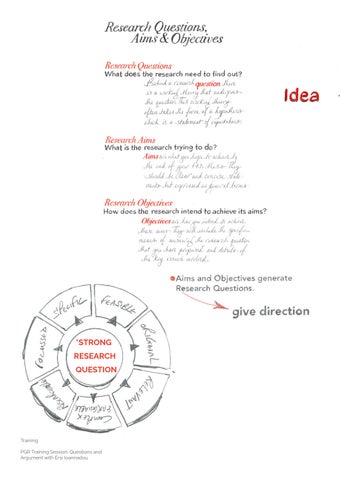 Research Questions,
Aims & Objectives
Research Questions
What does the research need to find out?
Behind a research question there
is a working theory that underpins
the question. This working theory
often takes the form of a hypothesis
which is a statement of expectations.
Idea
Research Aims
What is the research trying to do?
Aims are what you hope to achieve by
the end of your PhD thesis. They
should be clear and concise state-
ments but expressed in general terms.
Research Objectives
How does the research intend to achieve its aims?
Objectives are how you intend to achieve
those aims. They will include the specific
means of answering the research question
that you have proposed and details of
the key issues
Aims and Objectives generate
Research Questions.
give direction
SPECIFIC
FEASIBLE
ORIGINAL
RELEVANT
COMPLEX
FOCUSSED
"STRONG
RESEARCH
QUESTION
Training
PGR Training Session: Questions and
Argument with Ersi Ioannidou